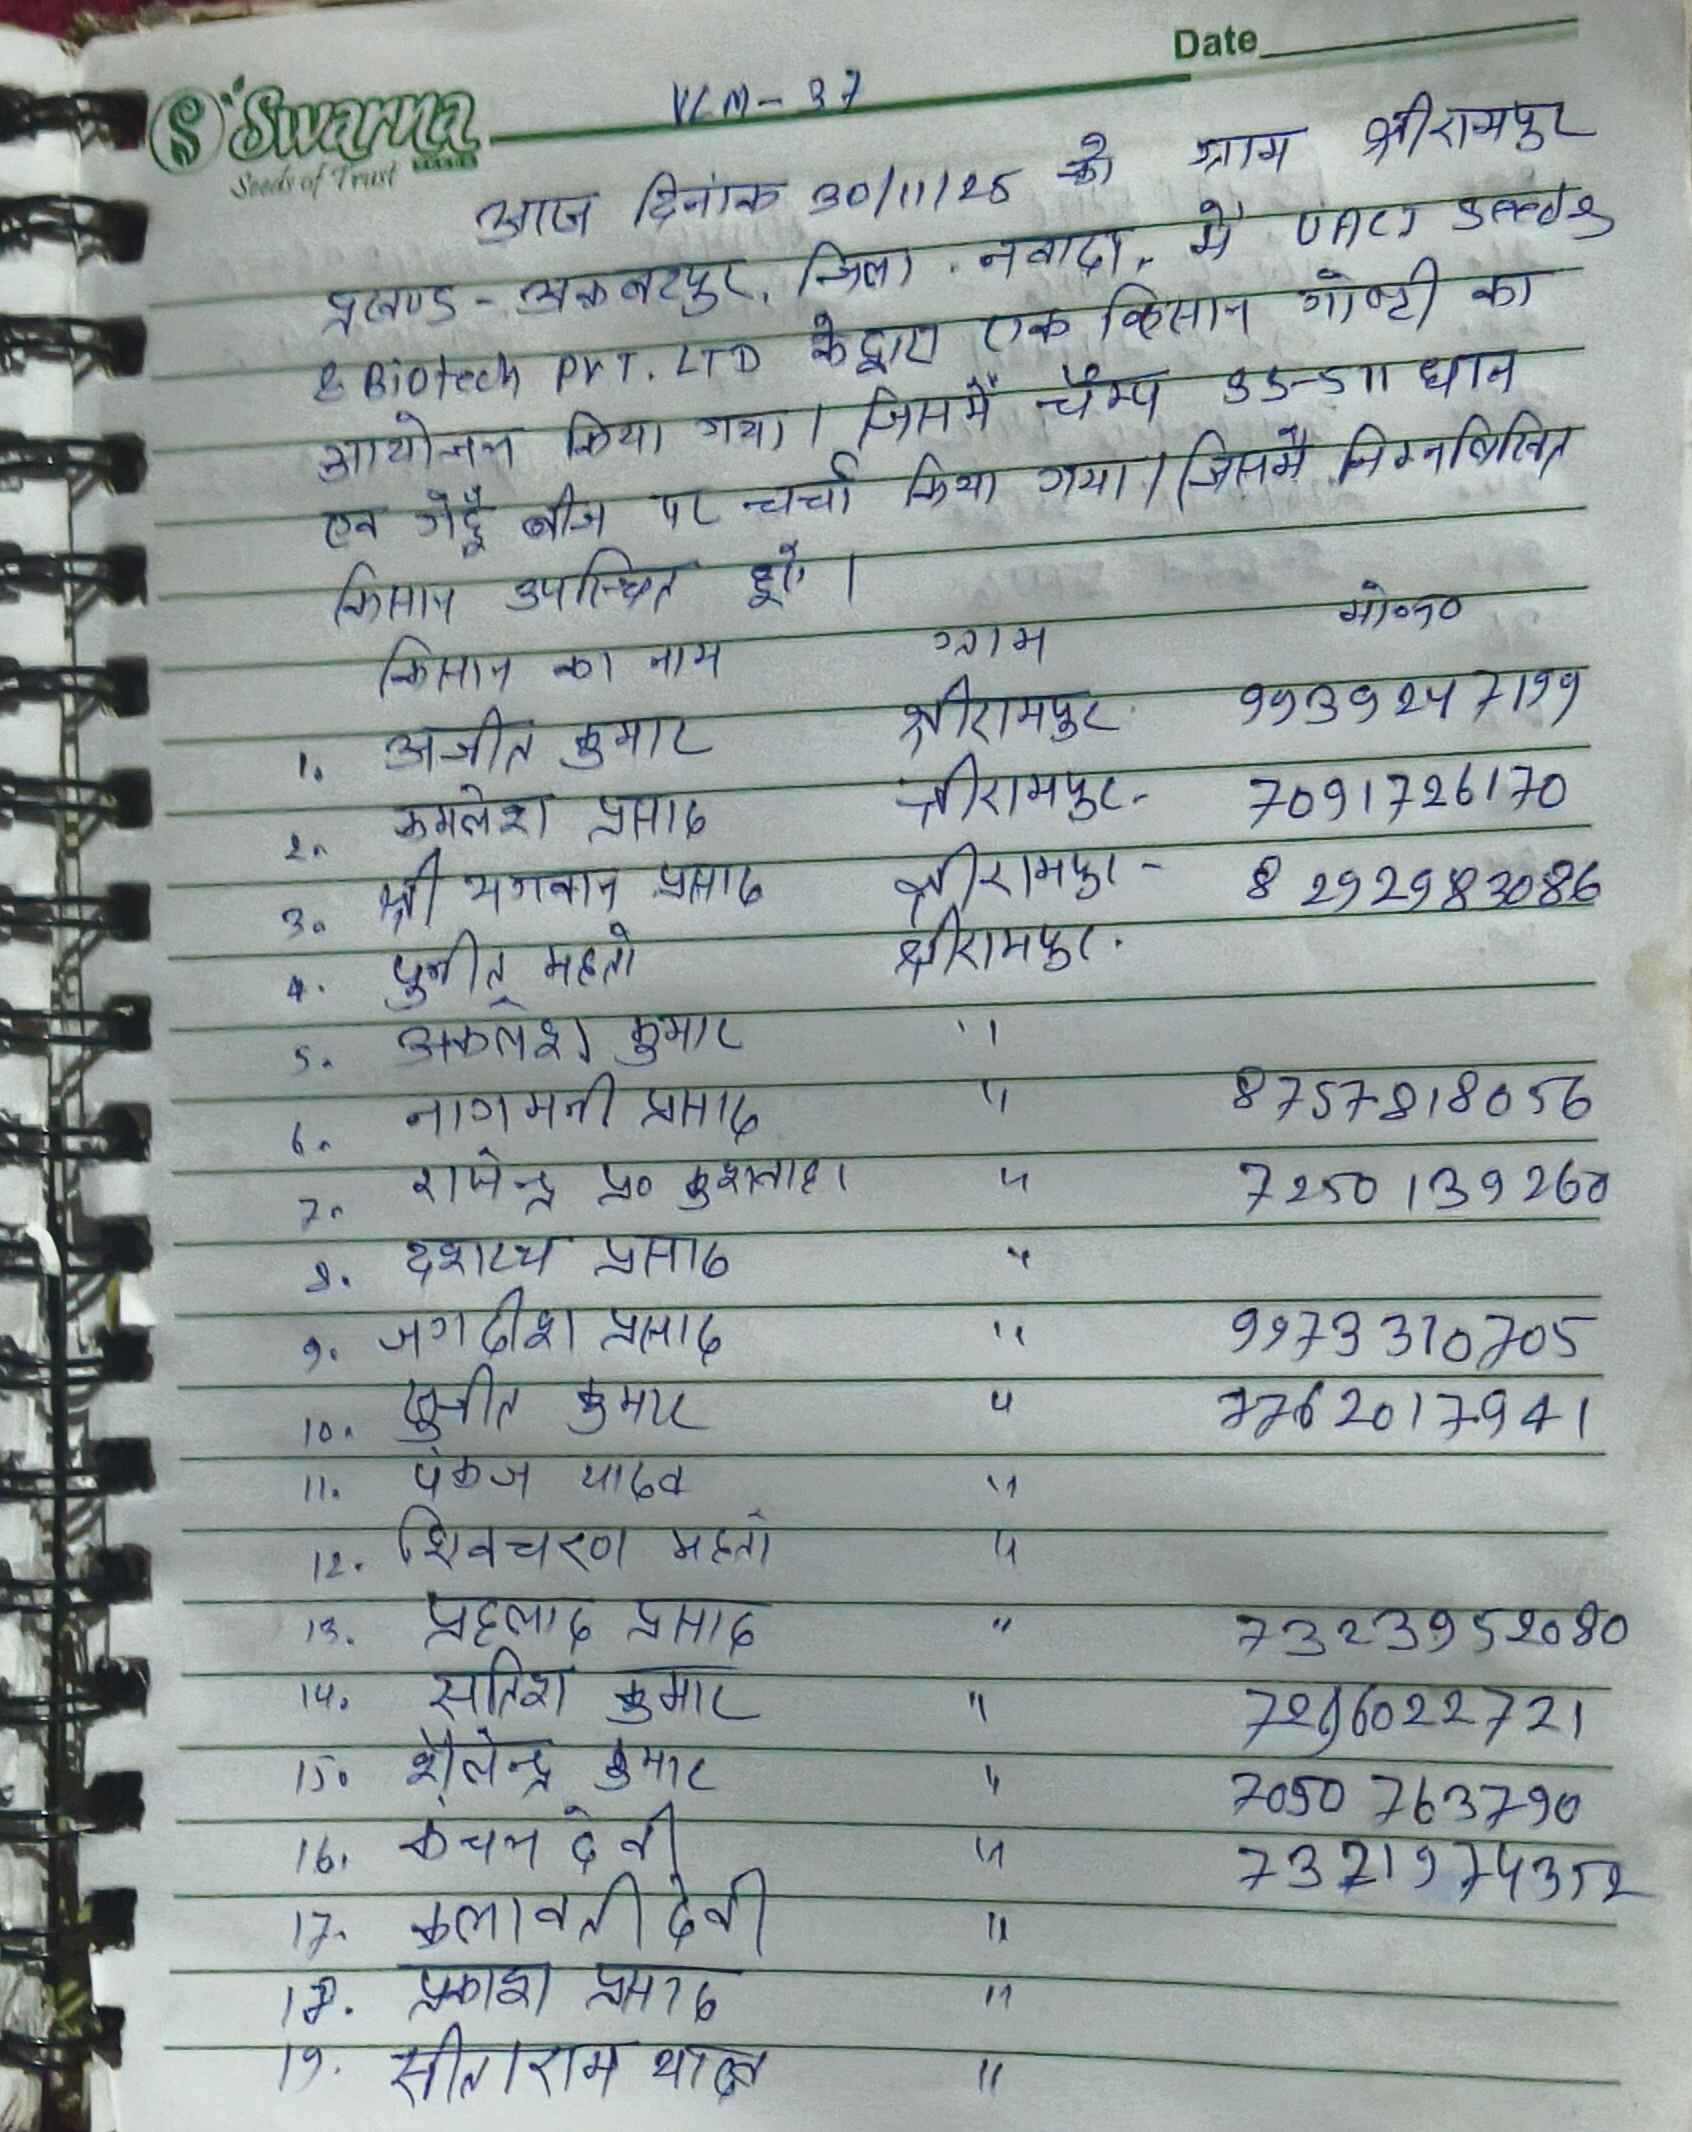 Date
S Swarna
Seeds of Trust
VCM-37
आज दिनांक 30/11/25 को ग्राम श्रीरामपुर
प्रखण्ड - अकबरपुर, जिला - नवादा, में UACJ Seeds
& Biotech PVT. LTD के द्वारा एक किसान गोष्टी का
आयोजन किया गया। जिसमें चैम्प SS-511 धान
एव गेहूँ बीज पर चर्चा किया गया। जिसमें निम्नलिखित
किसान उपस्थित हुऐ।
किसान का नाम ग्राम मो०न०
1. अजीत कुमार श्रीरामपुर. 9939247199
2. कमलेश प्रसाद श्रीरामपुर- 7091726170
3. श्री भगवान प्रसाद श्रीरामपुर - 8292983086
4. पुनीत महतो श्रीरामपुर.
5. अकलेश कुमार "
6. नागमनी प्रसाद " 8757818056
7. राजेन्द्र प्र० कुशवाहा " 7250139260
8. दशरथ प्रसाद "
9. जगदीश प्रसाद " 9973310705
10. सुजीत कुमार " 7762017941
11. पंकज यादव "
12. शिवचरण महतो "
13. प्रहलाद प्रसाद " 7323952080
14. सतिश कुमार " 7296022721
15. शैलेन्द्र कुमार " 7050763790
16. कंचन देवी " 7321974352
17. कलावती देवी "
18. प्रकाश प्रसाद "
19. सीताराम यादव "